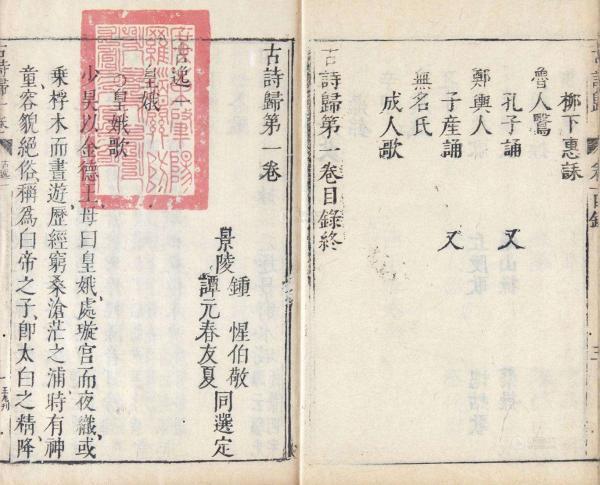 柳下惠誄
魯人鷖
孔子誦 又
鄭輿人
子產誦 又
無名氏
成人歌
古詩歸第一卷目錄終
古詩歸第一卷
景陵 鍾 惺伯敬
譚元春友夏 同選定
古逸一
皇娥
皇娥歌
少昊以金德王母曰皇娥處璇宮而夜織或
乘桴木而晝遊歷經窮桑滄茫之浦時有神
童容貌絶俗稱為白帝之子卽太白之精降